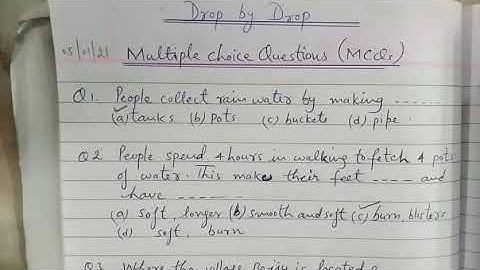 Drop by Drop
05/01/21 Multiple choice Questions (MCQs)
Q1. People collect rain water by making ......
(a) tanks (b) pots (c) buckets (d) pipe.
Q2 People spend 4 hours in walking to fetch 4 pots
of water. This makes their feet .... and
have .....
(a) soft, longer (b) smooth and soft (c) burn, blisters
(d) soft, burn
Q3 Where the village Bajju is located